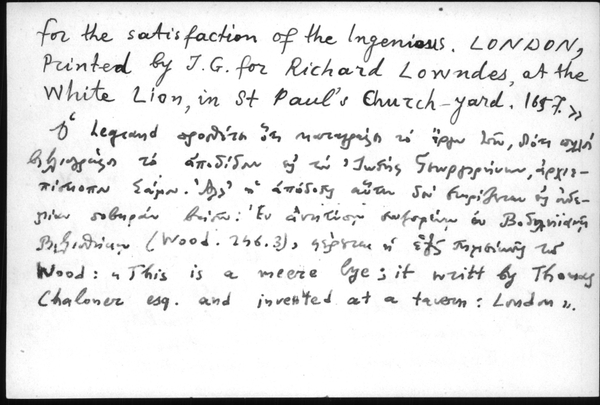 for the satisfaction of the Ingenious. LONDON,
Printed by J.G. for Richard Lowndes, at the
White Lion, in St Paul's Church-yard. 1657.»
Ὁ Legrand προσθέτει ὅτι καταγράφει τὸ ἔργον
τὸ ἀποδίδουν εἰς τὸν Ἰωσὴφ Γεωργειρήνην, ἀρχιε-
πίσκοπον Σάμου. Ἀλλ' ἡ ἀπόδοσις αὕτη δὲν στηρίζεται εἰς οὐδε-
μίαν σοβαρὰν βάσιν: Ἐν ἀντιτύπῳ ἐν Βοδληϊανῇ
Βιβλιοθήκῃ (Wood. 246.3), φέρεται ἡ ἑξῆς σημείωσις τοῦ
Wood: «This is a meere lye; it writt by Thomas
Chaloner esq. and invented at a tavern: London».